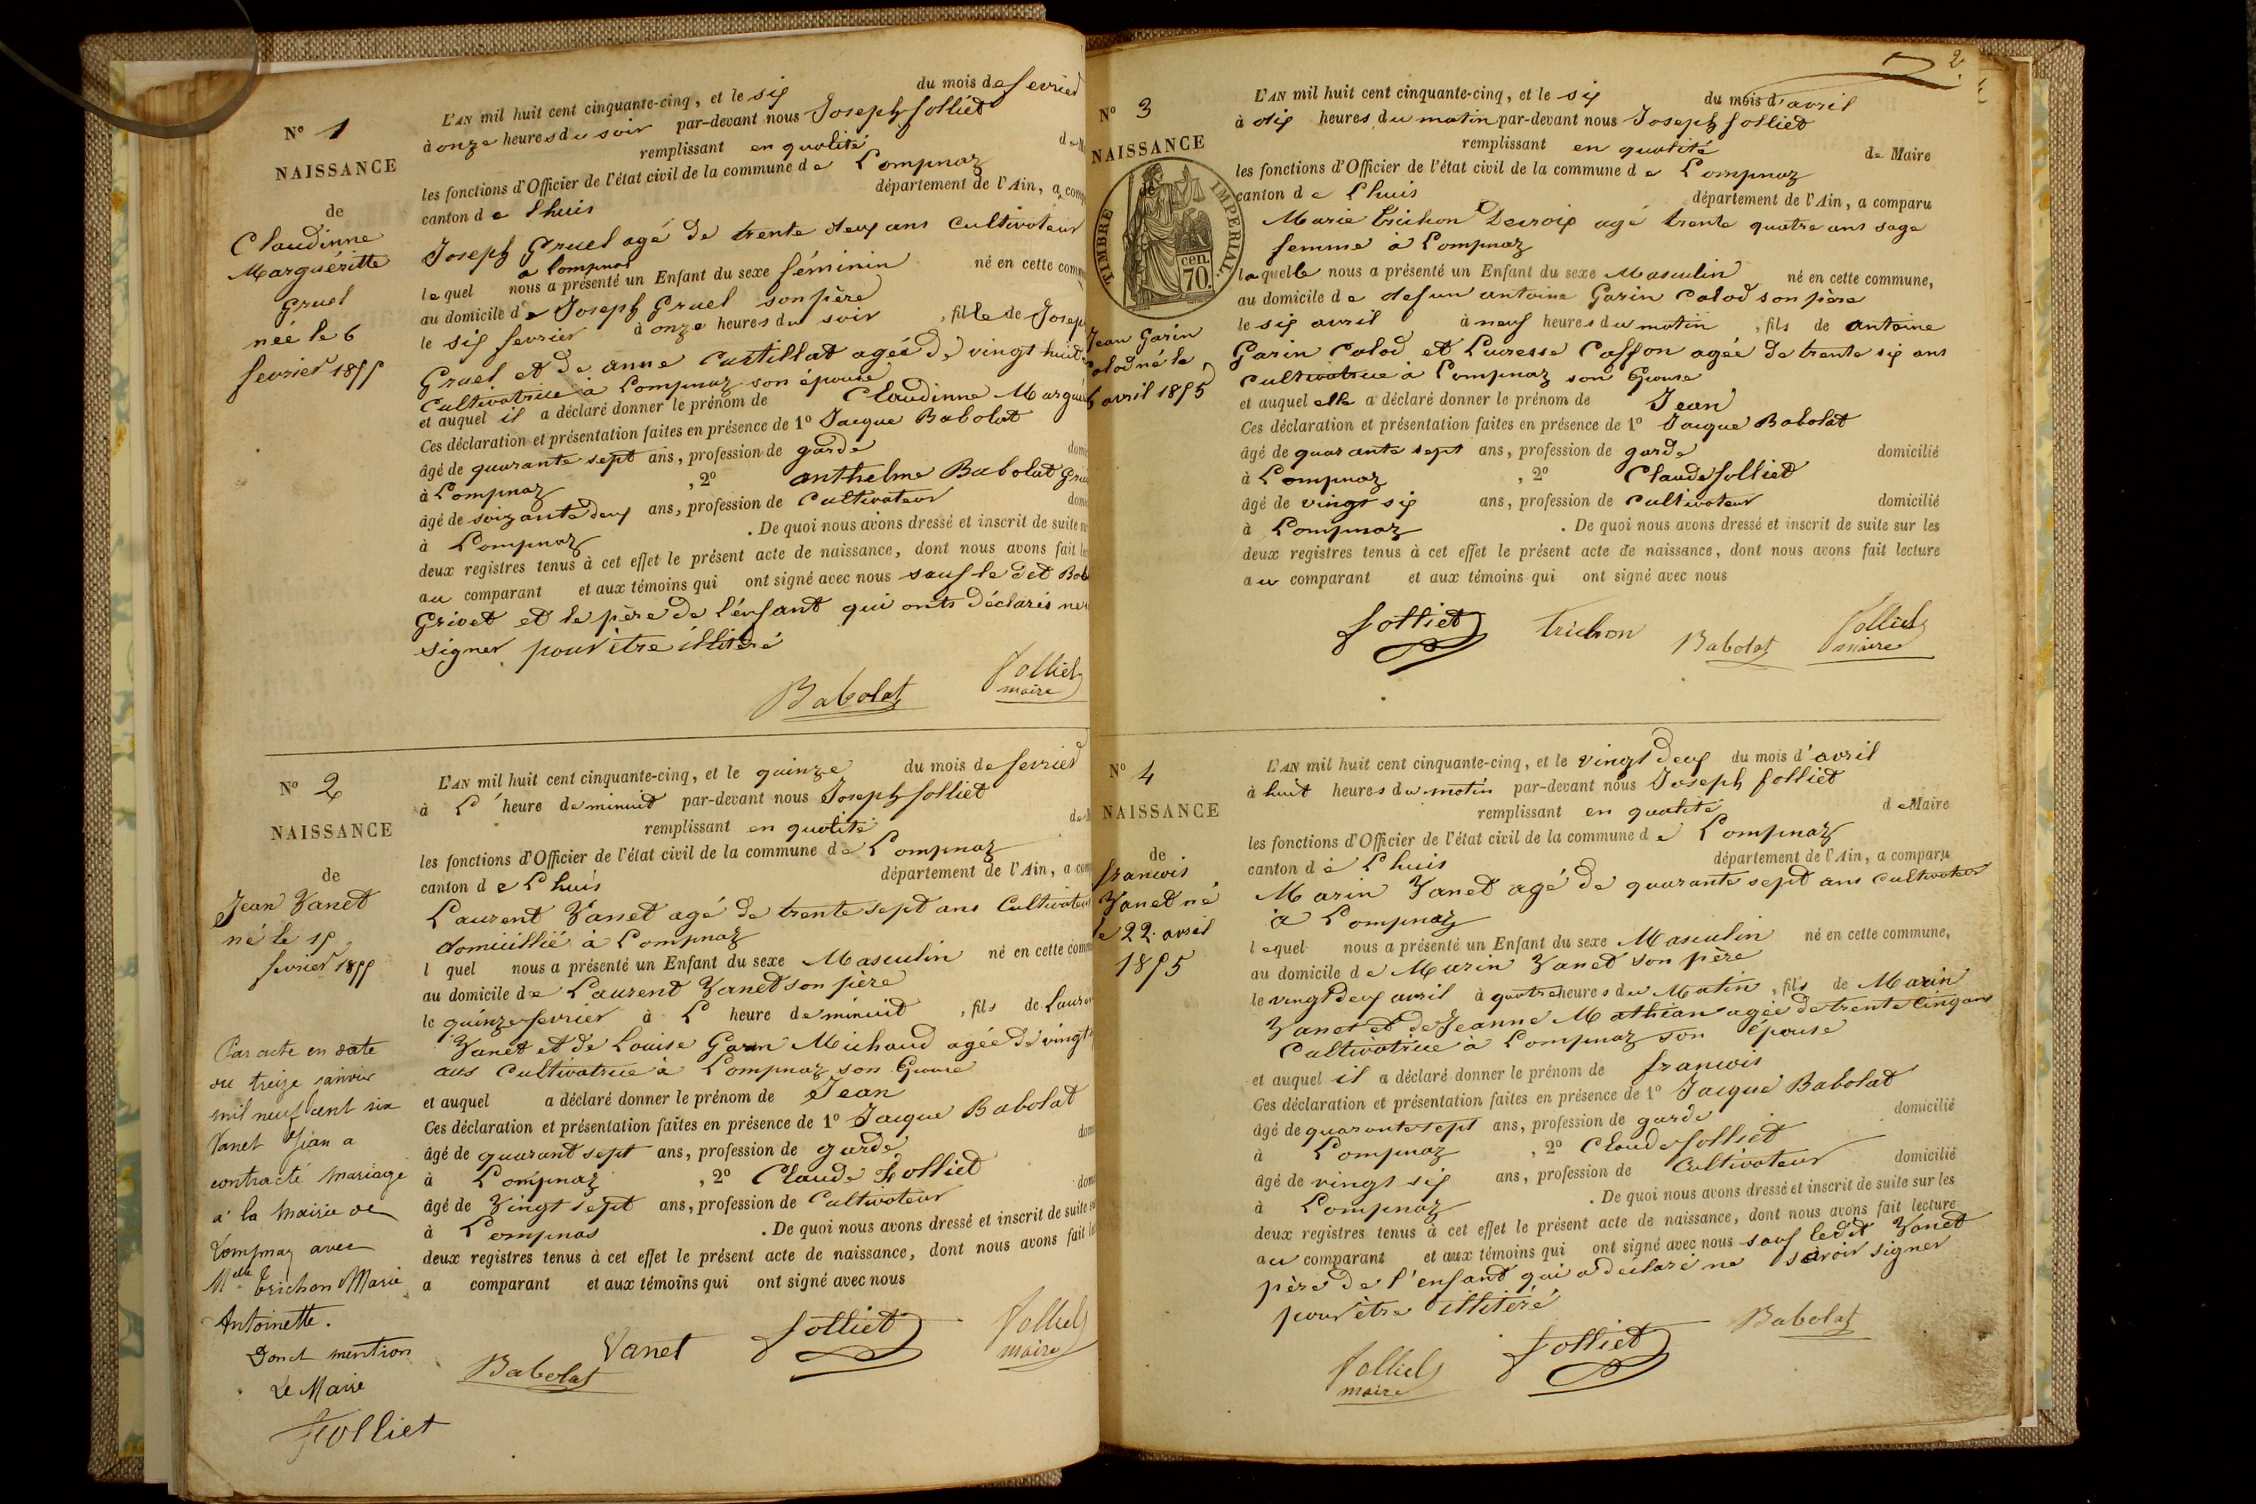 N° 1
NAISSANCE
de
Claudinne
Marguéritte
Gruel
née le 6
fevrier 1855
L'AN mil huit cent cinquante-cinq, et le six du mois de fevrier
à onze heures du soir par-devant nous Joseph folliet
remplissant en qualité de
les fonctions d'Officier de l'état civil de la commune de Lompnaz
canton de Lhuis département de l'Ain, a
Joseph Gruel agé de trente deux ans Cultivateur
a Lompnas
lequel nous a présenté un Enfant du sexe féminin né en cette
au domicile de Joseph Gruel son père
le six fevrier à onze heures du soir , fille de
Gruel et de anne Custillat agée de vingt huit
Cultivatrice à Lompnaz son épouse
et auquel il a déclaré donner le prénom de Claudinne
Ces déclaration et présentation faites en présence de 1° Jacque Babolat
âgé de quarante sept ans, profession de garde
à Lompnaz , 2° anthelme Babolat
âgé de soizante deux ans, profession de Cultivateur
à Lompnaz . De quoi nous avons dressé et inscrit de suite
deux registres tenus à cet effet le présent acte de naissance, dont nous avons fait
au comparant et aux témoins qui ont signé avec nous sauf le dit
Grivet et le père de l'enfant qui onts déclarés
signer pour être illitéré
Babolat folliet
maire
N° 2
NAISSANCE
de
Jean Vanet
né le 15
fevrier 1855
Par acte en date
du treize janvier
mil neuf cent six
Vanet Jean a
contracté mariage
à la mairie de
Lompnaz avec
Melle Trichon Marie
Antoinette.
Dont mention
Le Maire
Folliet
L'AN mil huit cent cinquante-cinq, et le quinze du mois de fevrier
à L' heure de minuit par-devant nous Joseph folliet
remplissant en qualité de
les fonctions d'Officier de l'état civil de la commune de Lompnaz
canton de Lhuis département de l'Ain, a
Laurent Vanet agé de trente sept ans Cultivateur
domicillié à Lompnaz
l quel nous a présenté un Enfant du sexe Masculin né en cette
au domicile de Laurent Vanet son père
le quinze fevrier à L heure de minuit , fils de
Vanet et de Louise Garin Michaud agée de vingt
ans Cultivatrice à Lompnaz son Epouse
et auquel a déclaré donner le prénom de Jean
Ces déclaration et présentation faites en présence de 1° Jacque Babolat
âgé de quarant sept ans, profession de garde
à Lompnaz , 2° Claude Folliet
âgé de Vingt sept ans, profession de Cultivateur
à Lompnas . De quoi nous avons dressé et inscrit de suite
deux registres tenus à cet effet le présent acte de naissance, dont nous avons fait
a comparant et aux témoins qui ont signé avec nous
Babolat Vanet folliet folliet
maire
2
N° 3
NAISSANCE
de
TIMBRE IMPERIAL.
70. cen
Jean Garin
Calod né le
6 avril 1855
L'AN mil huit cent cinquante-cinq, et le six du mois d'avril
à dix heures du matin par-devant nous Joseph folliet
remplissant en qualité de Maire
les fonctions d'Officier de l'état civil de la commune de Lompnaz
canton de Lhuis département de l'Ain, a comparu
Marie Trichon Decroix agé trente quatre ans sage
femme à Lompnaz
laquelle nous a présenté un Enfant du sexe Masculin né en cette commune,
au domicile de defun antoine Garin Calod son père
le six avril à neuf heures du matin , fils de antoine
Garin Calod et Lucresse Caffon agée de trente six ans
Cultivatrice à Lompnaz son Epouse
et auquel elle a déclaré donner le prénom de Jean
Ces déclaration et présentation faites en présence de 1° Jacque Babolat
âgé de quarante sept ans, profession de garde domicilié
à Lompnaz , 2° Claude folliet
âgé de vingt six ans, profession de Cultivateur domicilié
à Lompnaz . De quoi nous avons dressé et inscrit de suite sur les
deux registres tenus à cet effet le présent acte de naissance, dont nous avons fait lecture
au comparant et aux témoins qui ont signé avec nous
folliet Trichon Babolat folliet
maire
N° 4
NAISSANCE
de
francois
Vanet né
le 22 avril
1855
L'AN mil huit cent cinquante-cinq, et le vingt deux du mois d'avril
à huit heures du matin par-devant nous Joseph folliet
remplissant en qualité de Maire
les fonctions d'Officier de l'état civil de la commune de Lompnaz
canton de Lhuis département de l'Ain, a comparu
Marin Vanet agé de quarante sept ans Cultivateur
à Lompnaz
lequel nous a présenté un Enfant du sexe Masculin né en cette commune,
au domicile de Marin Vanet son père
le vingt deux avril à quatre heures du Matin , fils de Marin
Vanet et de Jeanne Mathian agée de trente Cinq ans
Cultivatrice à Lompnaz son épouse
et auquel il a déclaré donner le prénom de francois
Ces déclaration et présentation faites en présence de 1° Jacque Babolat
âgé de quarante sept ans, profession de garde domicilié
à Lompnaz , 2° Claude folliet
âgé de vingt six ans, profession de Cultivateur domicilié
à Lompnaz . De quoi nous avons dressé et inscrit de suite sur les
deux registres tenus à cet effet le présent acte de naissance, dont nous avons fait lecture
au comparant et aux témoins qui ont signé avec nous sauf ledit Vanet
père de l'enfant qui a declaré ne savoir signer
pour être illitéré
folliet folliet Babolat
maire